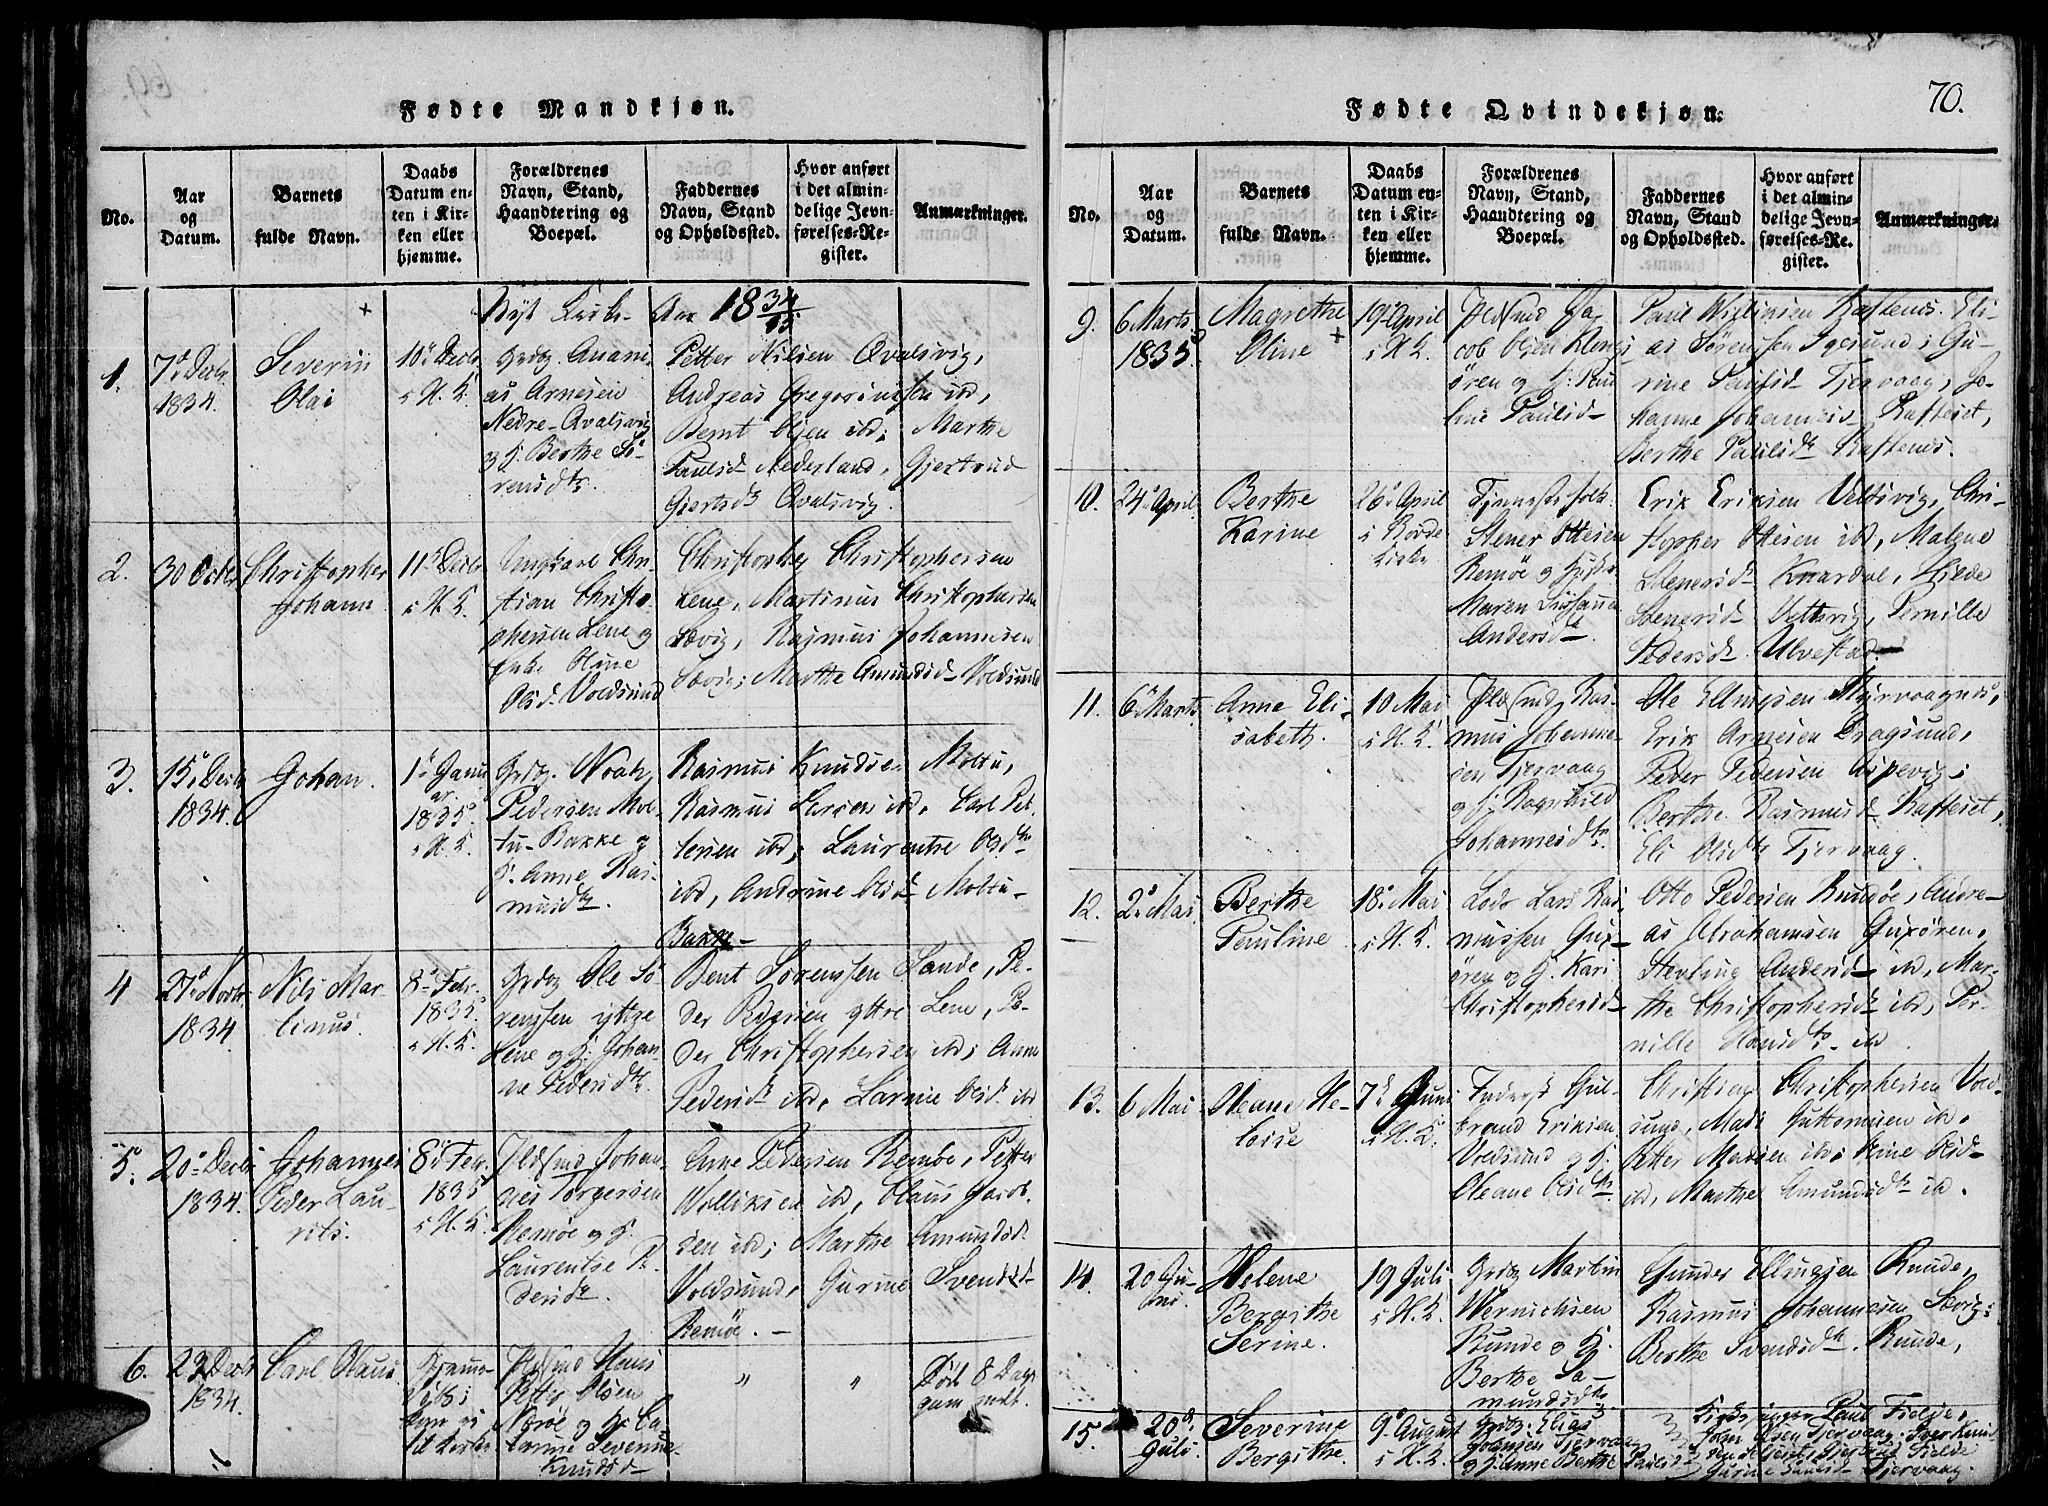 Fødte Mandkjøn.
No.
Aar
og
Datum.
Barnets
fulde Navn.
Daabs
Datum en-
ten i Kir-
ken eller
hjemme.
Forældrenes
Navn, Stand,
Haandtering og
Boepæl.
Faddernes
Navn, Stand
og Opholdssted.
Hvor anført
i det almin-
delige Jevn-
førelses-Re-
gister.
Anmærkninger.
Nyt Kirke- Aar 1834/35
1.
7de Decbr.
1834.
Severin
Olai
10de Decbr
i H. K.
Grdbr. Anani-
as Arnesen
Nedre-Qvalsvig
og H. Berthe Sö-
rensdtr.
Petter Nilsen Qvalsvig,
Andreas Gregoriussen ibd,
Bernt Olsen ibd; Marthe
Paulsdr Nederland, Gjertrud
Giertsdr Qvalsvig.
2.
30 Octbr
Christopher
Johann
11te Decbr
i H. K.
Ungkarl Chri-
stian Christo-
phersen Lene og
Enke Oline
Olsd. Voldsund
Christopher Christophersen
Lene, Martinus Christophersen
Sævig, Rasmus Johannesen
Sævig; Marthe Amundsd. Voldsund
3.
15de Decbr
1834.
Johan.
1te Janu
ar
1835
i H. K.
Grdbr. Noah
Pedersen Mol-
tu-Bakke og
H. Anne Ras-
musdtr.
Rasmus Knudsen Moltu,
Rasmus Larsen ibd. Carl Pet-
tersen ibd; Laurentse Olsdtr
ibd, Andrine Olsdr Moltu-
Bakke-
4
27de Novbr.
1834.
Nils Mar-
tinus.
8de Febr.
1835
i H. K.
Grdbr Ole Sö-
rensen yttre
Lene og H. Johan-
na Pedersdtr.
Bent Sörensen Sande, Pe-
der yttre Lene, Pe-
der Christophersen ibd; Anne
Pedersdr ibd, Larsine Olsdr ibd
5.
20de Decbr
1834.
Johannes
Peder Lau-
rits.
8de Febr.
1835
i H. K.
Plds Johan-
nes Torgersen
Remöe og H.
Laurentse Pe-
dersdtr.
Arne Pedersen Remöe, Petter
Williksen ibd, Claus Jacob-
sen ibd; Marthe Amundsdr
Voldsund, Gurine Svendsdr
Remöe.
6.
23 Decbr
1834.
Carl Olaus
Hjemme-
döbt;
Hans
Petter Olsen
Nærøe og H. Ca-
tarine Severine
Knudsdr
"
"
Död 8 Dage
gam melt.
Fødte Qvindekjøn.
70.
No.
Aar
og
Datum.
Barnets
fulde Navn.
Daabs
Datum en-
ten i Kir-
ken eller
hjemme.
Forældrenes
Navn, Stand,
Haandtering og
Boepæl.
Faddernes
Navn, Stand
og Opholdssted.
Hvor anført
i det almin-
delige Jevn-
førelses-Re-
gister.
Anmærkninger.
9.
6 Marts
1835
Magrethe
Oline
19de April
i H. K.
Ja-
cob Olsen Kleng-
ören og H. Pau-
line Paulsd-
Paul Willíksen Raftenes. Eli-
as Sörensen Igesund; Gu-
rine Paulsdr Tjervaag, Jo-
hanne Johannesd. Rafteset,
Berthe Paulsdr Raftenes.
10.
24de April
Berthe
Karine
26de April
i Røvde
Kirke
Tjenestefolk
Stener Ottesen
Remöe og
Maren Susanna
Andersdr.
Erik Eriksen Veltsvig, Chri-
stopher Ottesen ibd, Malene
Stenersdr Knardal, Hilde
Stenersdr Vettsvig, Pernille
Pedersdr Ulvestad.
11.
6te Marts
Anne Eli-
sabeth.
10 Mai
i H. K.
Ras-
mus Johanne-
sen Tjervaag
og H. Ragnhild
Johannesdtr.
Ole Ellingsen Myrvaagnes,
Erik Arnesen Dragsund,
Peder Pedersen Aspevig;
Berthe Rasmusdr Rafteset,
Eli Olsdtr Tjervaag.
12.
2de Mai
Berthe
Pauline
18de Mai
i H. K.
Lods Lars Ras-
mussen Gux-
ören og H. Kari
Christophersd-
Otto Pedersen Rundöe, Andre-
as Abrahamsen Guxören,
Andersdr ibd, Mar-
the Christophersdr ibd, Per-
nille Hansdtr ibd.
13.
6 Mai
Oleane He-
loise
7de Juni
i H. K.
Gul-
brand Eriksen
Voldsund og H.
Oleane Olsdtr
Christian Christophersen Vold-
sund, Mads Guttormsen ibd.
Petter Madsen ibd; Oline Olsdr
ibd, Marthe Amundsdr ibd.
14.
20 Ju-
ni.
Helene
Bergithe
Serine.
19 Juli
i H. K.
Grdbr Martin
Wernichsen
Runde og H.
Berthe Sa-
mundsdtr
Gunder Ellingsen Runde,
Rasmus Johannesen Sævig;
Berthe Svendsdr. Runde,
15.
20de
Juli
Severine
Bergithe.
9de August
i H. K.
Grdbr. Elias
Johnsen Tjervaag
og H. Anne Berthe Paulsd
Kirkesanger Paul Fielde,
John Olsen Tjervaag, Sver Knud-
Gjertrud Fielde
Gurine Paulsdr Tjervaag.